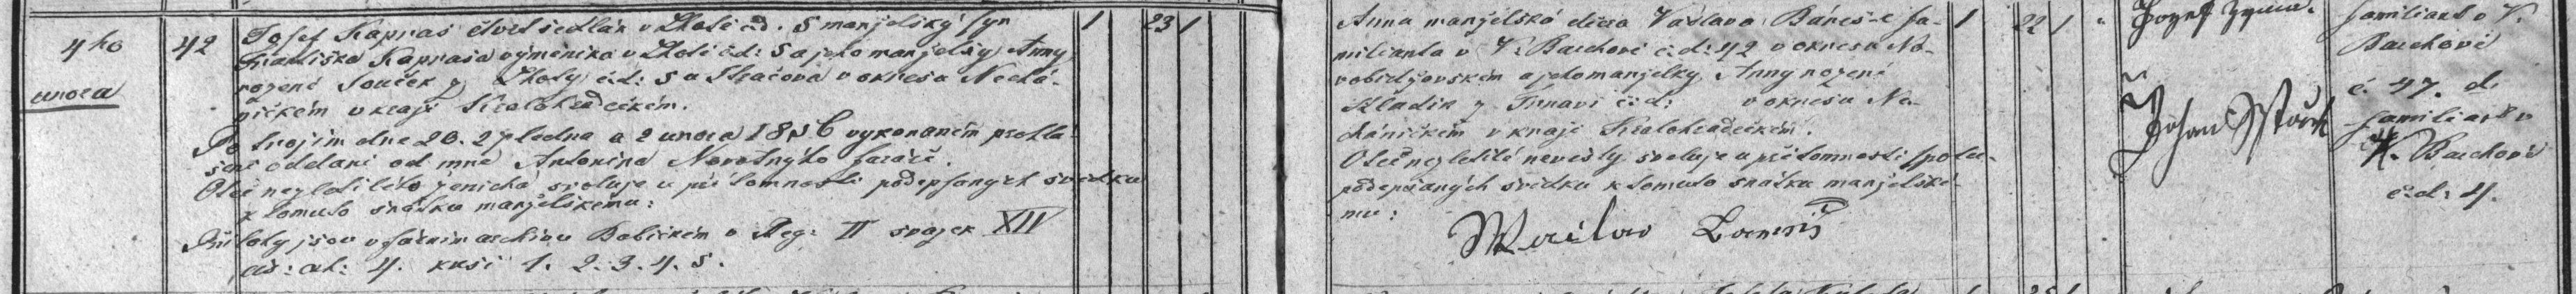 4ho
unora
42
Josef Kapras čtvrt sedlák v Lhotě čd. 5 manželský syn
Františka Kaprasa výměníka v Lhotě čd: 5 a jeho manželky Anny
rozené Souček z Lhoty čd: 5 u Hračova v okresu Nechá-
nickém v kraji Kralohradeckém.
Po trojím dne 20. 27 ledna a 2 unora 1856 vykonaném prohlá-
šení oddani od mne Antonína Novotnýho faráře.
Otec nezletilého ženicha svoluje v přítomnosti podepsaných svědku
k tomuto sňatku manželskému:
Přílohy jsou v farním archivu Babickém v Reg: II svazek XII
čís: ad: 4. kusi 1. 2. 3. 4. 5.
1 23 1
Anna manželská dcera Václava Báneš-e fa-
milianta v V. Barchově č.d: 42 v okresu No-
vobidžovském a jeho manželky Anny rozené
Kladin z Trnavi č:d: v okresu Ne-
chánickém v kraji Kralohradeckém.
Otec nezletilé nevěsty svoluje v přítomnosti spolu-
podepsaných svědku k tomuto sňatku manželské-
mu:
Waclaw
1 22 1
Jozef
Johan
familiant v V.
Barchově
č. 47. d.
familiant v
V. Barchově
č:d: 4.